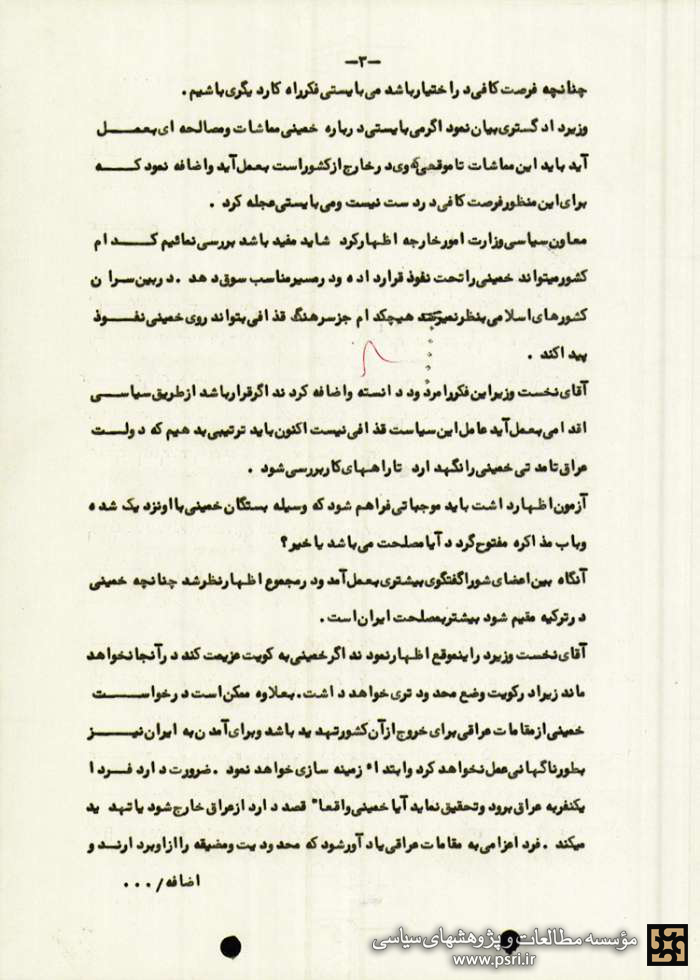 —۳—
چنانچه فرصت کافی در اختیار باشد می بایستی فکر راه کار دیگری باشیم .
وزیر دادگستری بیان نمود اگر می بایستی درباره خمینی مماشات و مصالحه ای بعمل
آید باید این مماشات تا موقعی که وی در خارج از کشور است بعمل آید و اضافه نمود که
برای این منظور فرصت کافی در دست نیست و می بایستی عجله کرد .
معاون سیاسی وزارت امور خارجه اظهار کرد شاید مفید باشد بررسی نمائیم کدام
کشور میتواند خمینی را تحت نفوذ قرار داده و در مسیر مناسب سوق دهد . در بین سران
کشورهای اسلامی بنظر نمیرسد هیچکدام جز سرهنگ قذافی بتواند روی خمینی نفوذ
پیدا کند .
آقای نخست وزیر این فکر را مردود دانسته و اضافه کردند اگر قرار باشد از طریق سیاسی
اقدامی بعمل آید عامل این سیاست قذافی نیست اکنون باید ترتیبی بدهیم که دولت
عراق تا مدتی خمینی را نگهدارد تا راههای کار بررسی شود .
آزمون اظهار داشت باید موجباتی فراهم شود که وسیله بستگان خمینی با او نزدیک شده
و باب مذاکره مفتوح گردد آیا مصلحت می باشد یا خیر ؟
آنگاه بین اعضای شورا گفتگوی بیشتری بعمل آمد و در مجموع اظهار نظر شد چنانچه خمینی
در ترکیه مقیم شود بیشتر بمصلحت ایران است .
آقای نخست وزیر در اینموقع اظهار نمودند اگر خمینی به کویت عزیمت کند در آنجا نخواهد
ماند زیرا در کویت وضع محدود تری خواهد داشت . بعلاوه ممکن است درخواست
خمینی از مقامات عراقی برای خروج از آن کشور تهدید باشد و برای آمدن به ایران نیز
بطور ناگهانی عمل نخواهد کرد و ابتداء زمینه سازی خواهد نمود . ضرورت دارد فردا
یکنفر به عراق برود و تحقیق نماید آیا خمینی واقعاً قصد دارد از عراق خارج شود یا تهدید
میکند . فرد اعزامی به مقامات عراقی یادآور شود که محدودیت و مضیقه را از او بردارند و
اضافه / ...
مؤسسه مطالعات و پژوهشهای سیاسی
www.psri.ir